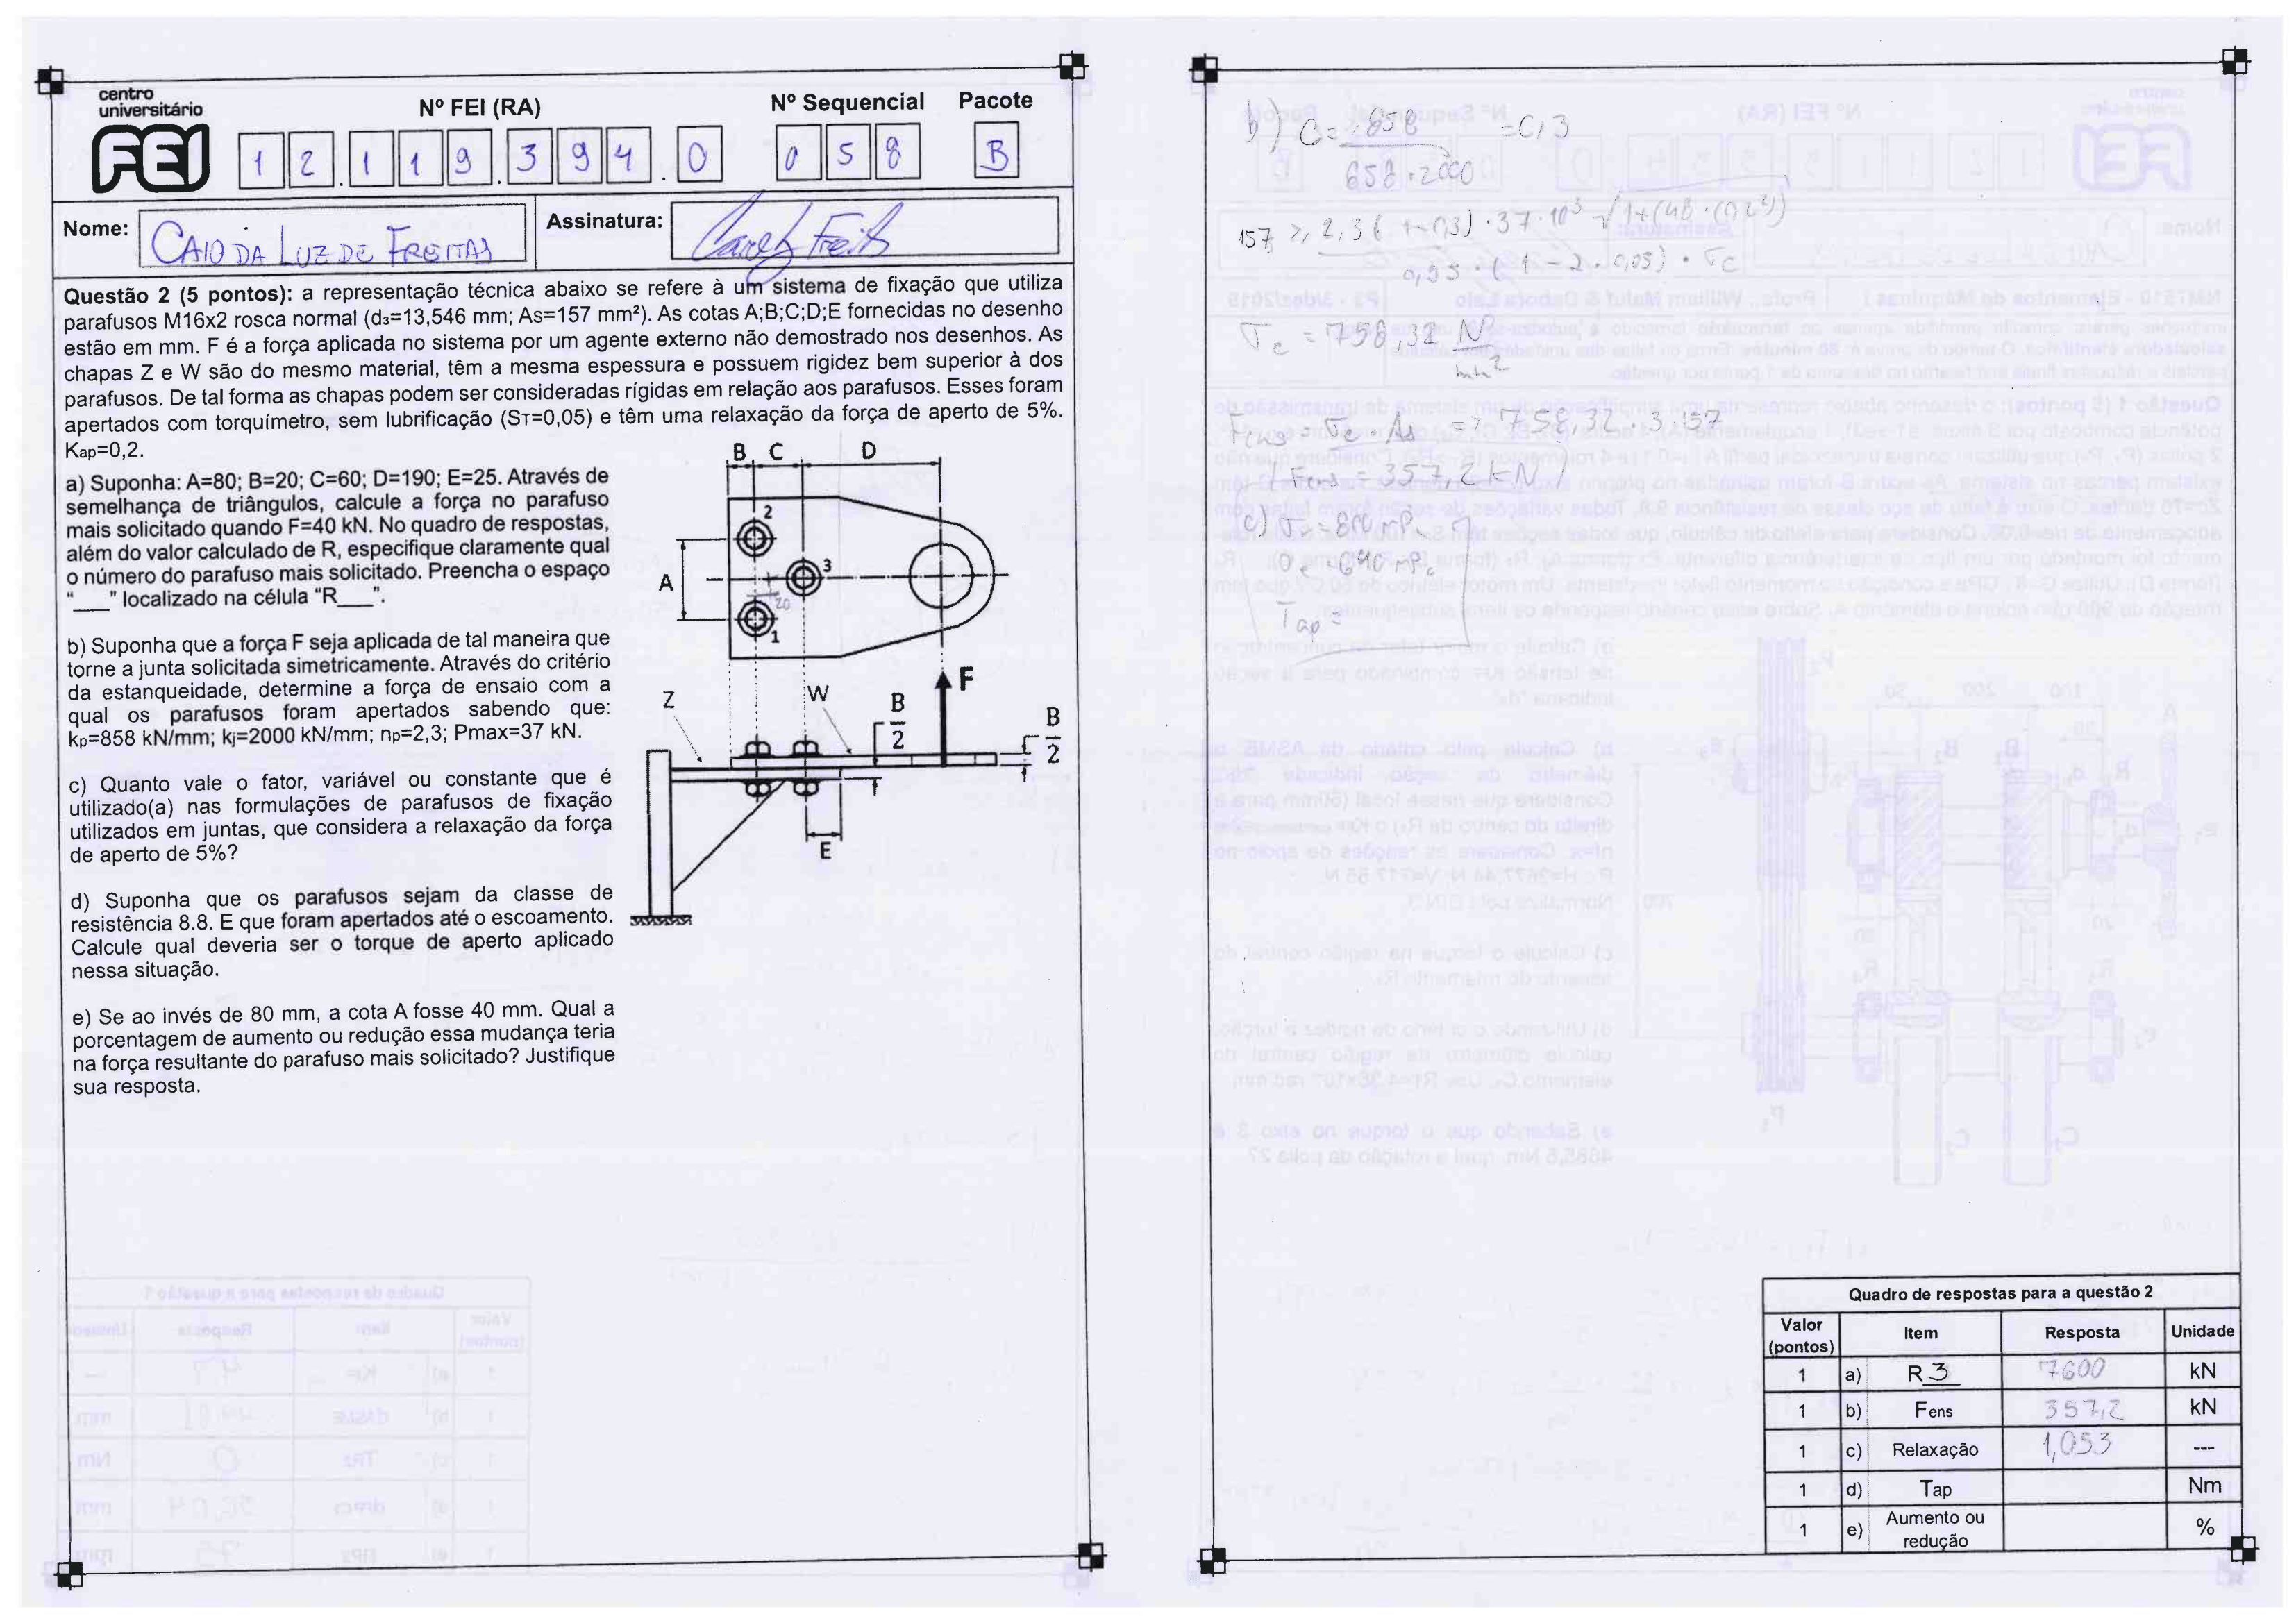 centro
universitário
FEI
Nº FEI (RA)
Nº Sequencial
Pacote
1 2 . 1 1 9 . 3 9 4 . 0
0 5 8
B
Nome: CAIO DA LUZ DE FREITAS
Assinatura:
Questão 2 (5 pontos): a representação técnica abaixo se refere à um sistema de fixação que utiliza
parafusos M16x2 rosca normal (d3=13,546 mm; As=157 mm²). As cotas A;B;C;D;E fornecidas no desenho
estão em mm. F é a força aplicada no sistema por um agente externo não demostrado nos desenhos. As
chapas Z e W são do mesmo material, têm a mesma espessura e possuem rigidez bem superior à dos
parafusos. De tal forma as chapas podem ser consideradas rígidas em relação aos parafusos. Esses foram
apertados com torquímetro, sem lubrificação (ST=0,05) e têm uma relaxação da força de aperto de 5%.
Kap=0,2.
a) Suponha: A=80; B=20; C=60; D=190; E=25. Através de
semelhança de triângulos, calcule a força no parafuso
mais solicitado quando F=40 kN. No quadro de respostas,
além do valor calculado de R, especifique claramente qual
o número do parafuso mais solicitado. Preencha o espaço
“___” localizado na célula “R___”.
b) Suponha que a força F seja aplicada de tal maneira que
torne a junta solicitada simetricamente. Através do critério
da estanqueidade, determine a força de ensaio com a
qual os parafusos foram apertados sabendo que:
kp=858 kN/mm; kj=2000 kN/mm; np=2,3; Pmax=37 kN.
c) Quanto vale o fator, variável ou constante que é
utilizado(a) nas formulações de parafusos de fixação
utilizados em juntas, que considera a relaxação da força
de aperto de 5%?
d) Suponha que os parafusos sejam da classe de
resistência 8.8. E que foram apertados até o escoamento.
Calcule qual deveria ser o torque de aperto aplicado
nessa situação.
e) Se ao invés de 80 mm, a cota A fosse 40 mm. Qual a
porcentagem de aumento ou redução essa mudança teria
na força resultante do parafuso mais solicitado? Justifique
sua resposta.
B C D
2
3
A
20
1
F
Z
W
B
2
B
2
E
b) C = 858 = 0,3
858+2000
157 ≥ 2,3 (1-0,3) · 37 · 10³
0,95 · (1 - 2 · 0,05) · σe
σe = 758,32 N
mm²
Fens = σe · As => 758,32 · 3 · 157
Fens = 357,2 kN
Tap =
Quadro de respostas para a questão 2
Valor (pontos) Item Resposta Unidade
1 a) R 3 7600 kN
1 b) Fens 357,2 kN
1 c) Relaxação 1,053 ---
1 d) Tap Nm
1 e) Aumento ou redução %